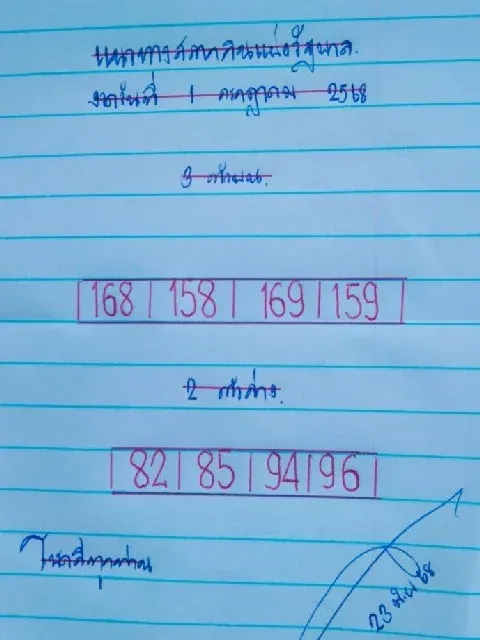 แนวทางสลากกินแบ่งรัฐบาล.
งวดวันที่ 1 กรกฎาคม 2568
3 ตัวบน.
168 | 158 | 169 | 159
2 ตัวล่าง.
82 | 85 | 94 | 96
โชคดีทุกท่าน
23 มิ.ย 68